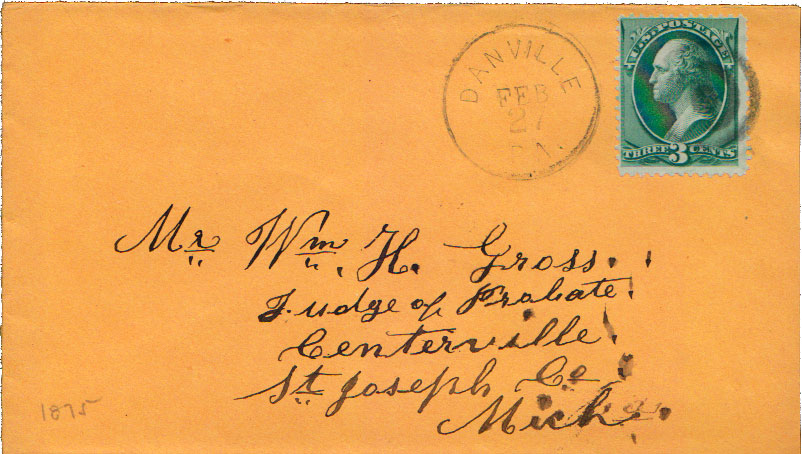 DANVILLE
FEB
27
PA.
U.S. POSTAGE
THREE 3 CENTS
Mr. Wm. H. Gross.
Judge of Probate.
Centerville
St. Joseph Co
Mich.
1875